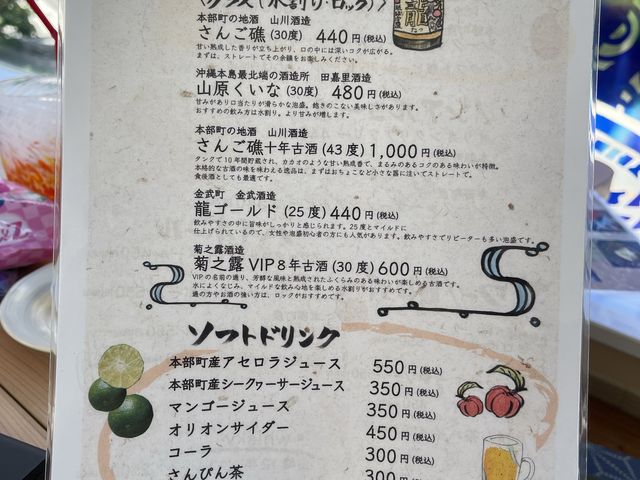 (水割り・ロック)>
本部町の地酒 山川酒造
さんご礁 (30度) 440円(税込)
甘い熟成した香りが立ち上がり、口の中には深いコクが広がる。
まずは、ストレートでその余韻をお楽しみください。
沖縄本島最北端の酒造所 田嘉里酒造
山原くいな (30度) 480円(税込)
甘みがあり口当たりが滑らかな泡盛。飽きのこない美味しさがあります。
おすすめの飲み方は水割り。より甘みが増します。
本部町の地酒 山川酒造
さんご礁十年古酒 (43度) 1,000円(税込)
タンクで10年間貯蔵され、カカオのような甘い熟成香で、まるみのあるコクのある味わいが特徴。
本格的な古酒の味を味わえる逸品は、まずはおちょこなど小さな器に注いでストレートで。
食後酒としても最適です。
金武町 金武酒造
龍ゴールド (25度) 440円(税込)
飲みやすさの中に旨味がしっかりと感じられます。25度とマイルドに
仕上げられているので、女性や泡盛初心者の方にも人気があります。飲みやすさでリピーターも多い泡盛です。
菊之露酒造
菊之露 VIP 8年古酒 (30度) 600円(税込)
VIPの名前の通り、芳醇な風味と熟成されたふくらみのある味わいが楽しめる古酒です。
水によくなじみ、マイルドな飲み心地を楽しめる水割りがおすすめです。
通の方やお酒の強い方は、ロックがおすすめです。
ソフトドリンク
本部町産アセロラジュース 550円(税込)
本部町産シークヮーサージュース 350円(税込)
マンゴージュース 350円(税込)
オリオンサイダー 450円(税込)
コーラ 300円(税込)
さんぴん茶 300円(税込)